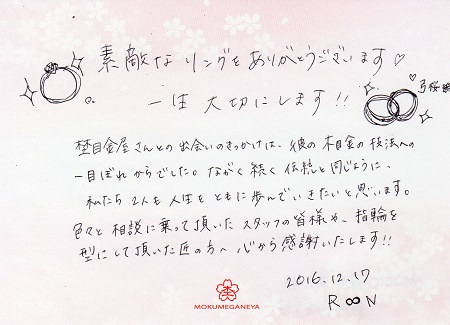 素敵なリングをありがとうございます♡
一生大切にします!!
杢目金屋さんとの出会いのきっかけは、彼の木目金の技法への
一目ぼれからでした。ながく続く伝統と同じように、
私たち2人も人生をともに歩んでいきたいと思います。
色々と相談に乗って頂いたスタッフの皆様や、指輪を
型にして頂いた匠の方へ心から感謝いたします!!
2016.12.17
R∞N
MOKUMEGANEYA